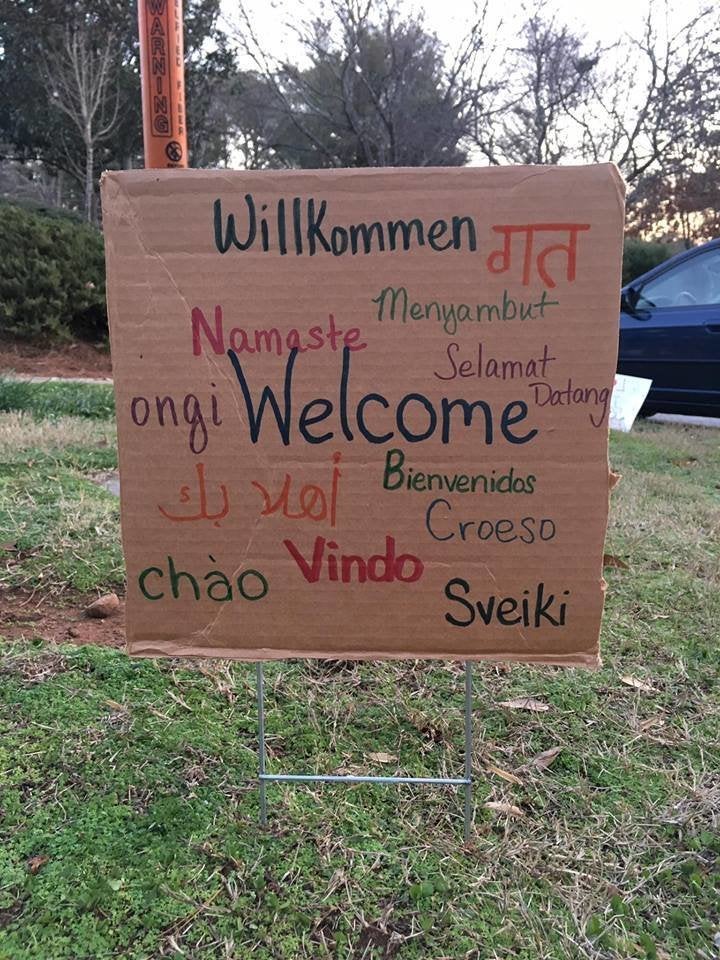 WARNING
Willkommen गत
Menyambut
Namaste
Selamat
Datang
ongi Welcome
Bienvenidos
أهلا بك
Croeso
Vindo
chào
Sveiki